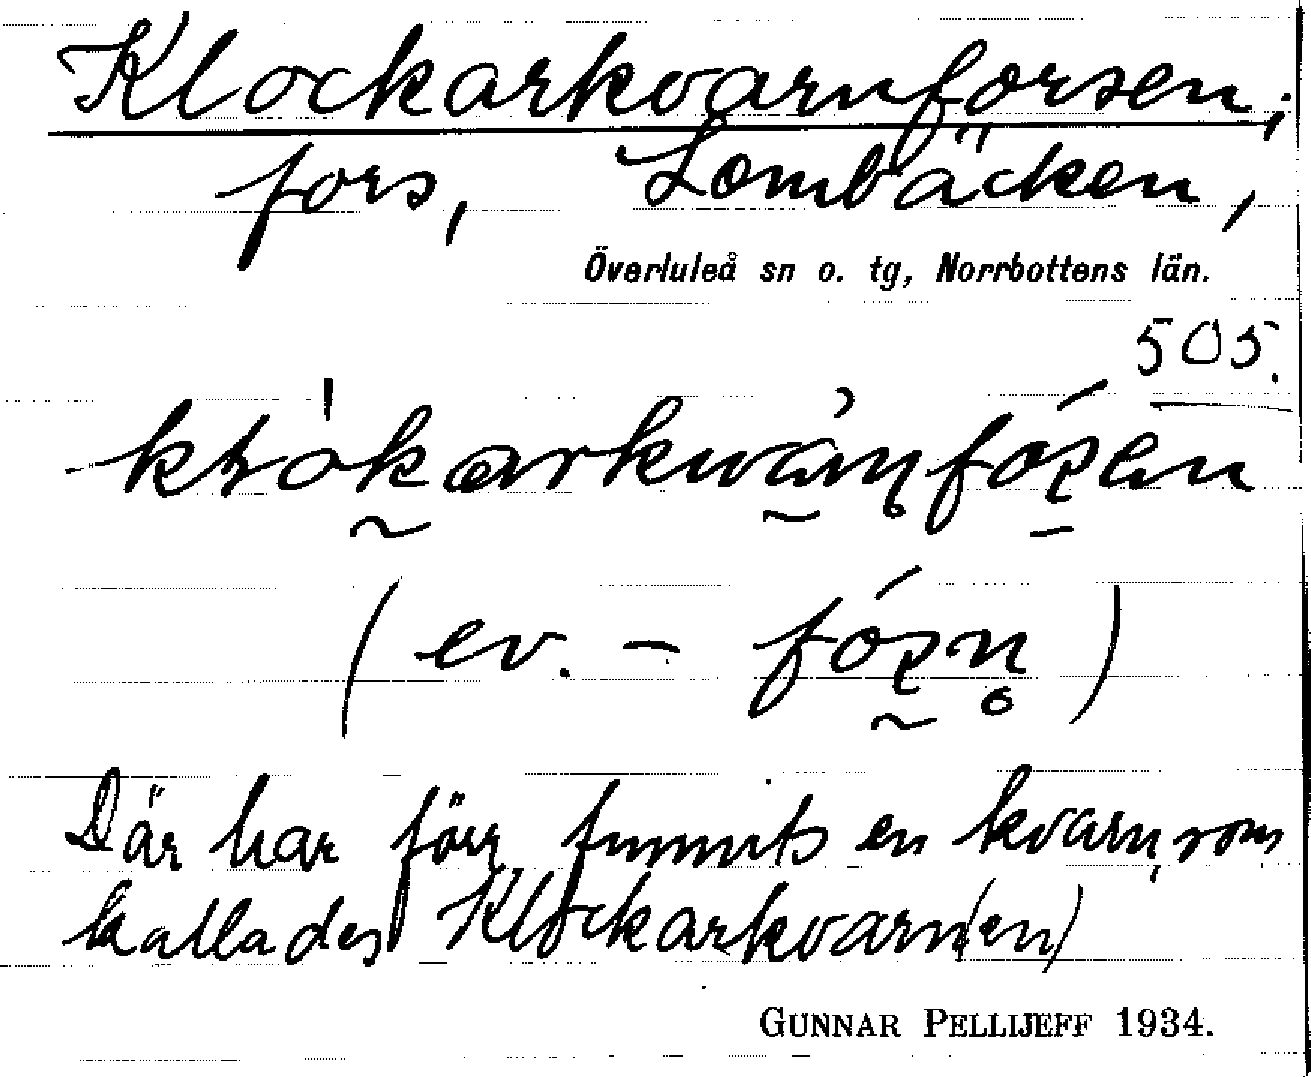 Klockarkvarnforsen;
fors, Lombäcken,
Överluleå sn o. tg, Norrbottens län.
505.
(ev. -
Där har förr funnits en kvarn, som
kallades Klockarkvarn(en)
GUNNAR PELLIJEFF 1934.